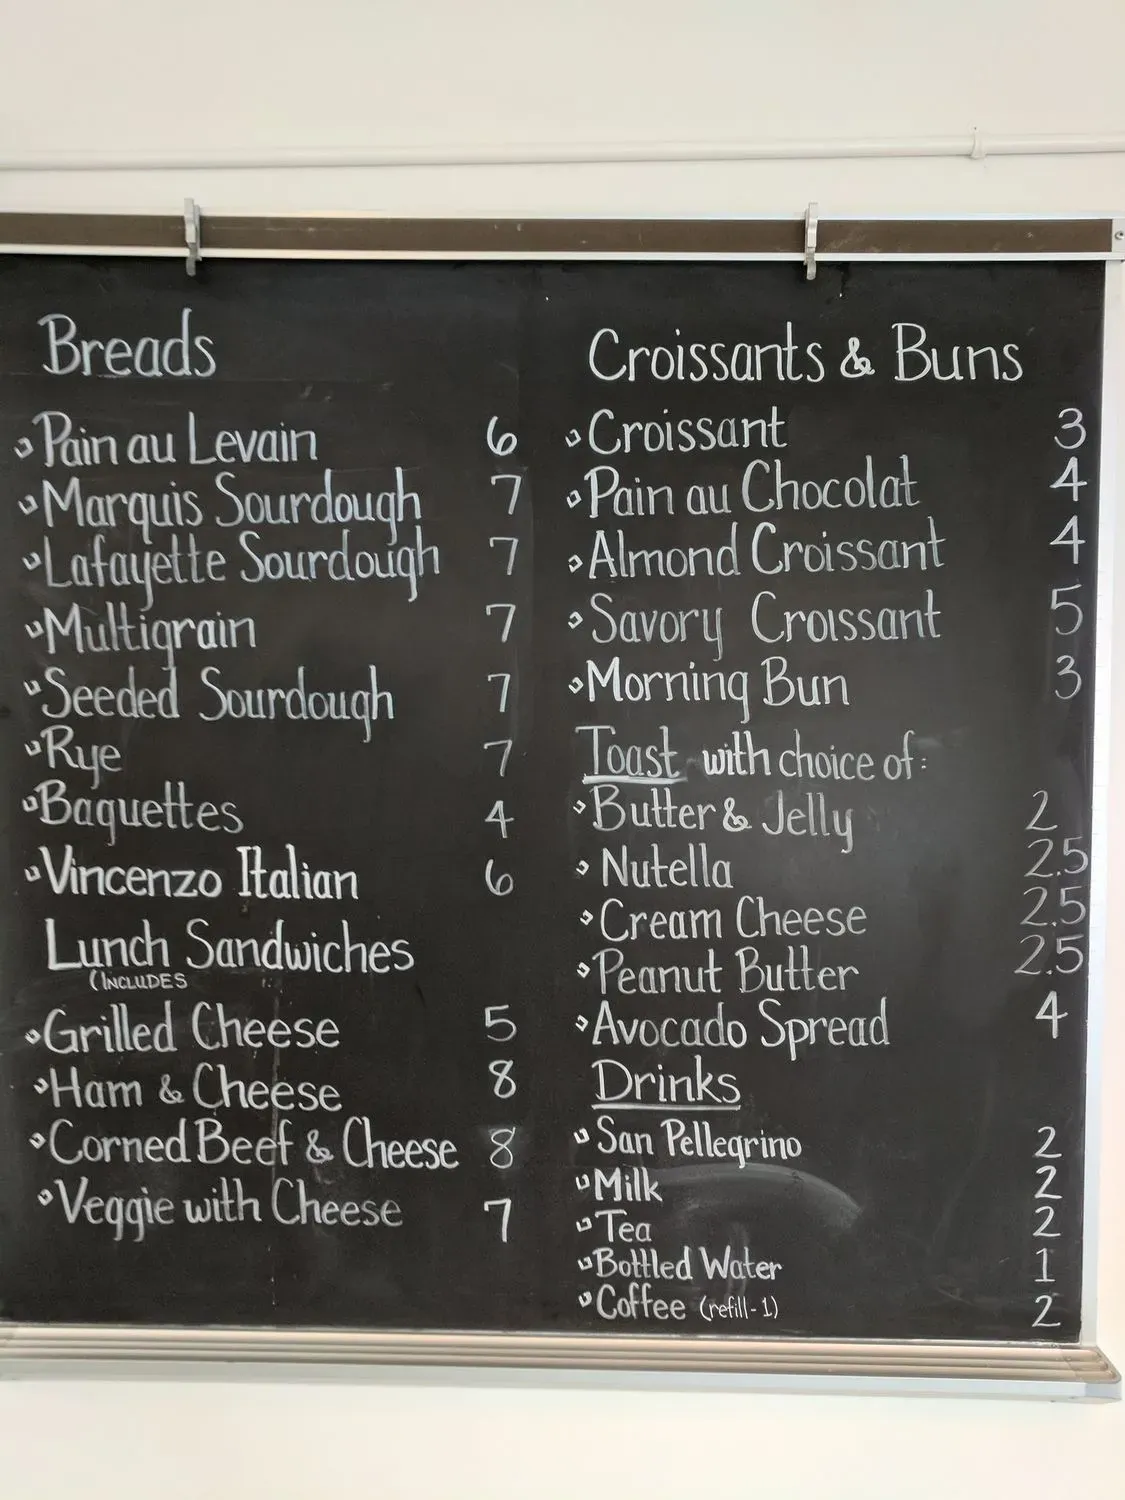 Breads
Pain au Levain 6
Marquis Sourdough 7
Lafayette Sourdough 7
Multigrain 7
Seeded Sourdough 7
Rye 7
Baguettes 4
Vincenzo Italian 6
Lunch Sandwiches
(INCLUDES
Grilled Cheese 5
Ham & Cheese 8
Corned Beef & Cheese 8
Veggie with Cheese 7
Croissants & Buns
Croissant 3
Pain au Chocolat 4
Almond Croissant 4
Savory Croissant 5
Morning Bun 3
Toast with choice of:
Butter & Jelly 2
Nutella 2.5
Cream Cheese 2.5
Peanut Butter 2.5
Avocado Spread 4
Drinks
San Pellegrino 2
Milk 2
Tea 2
Bottled Water 1
Coffee (refill-1) 2